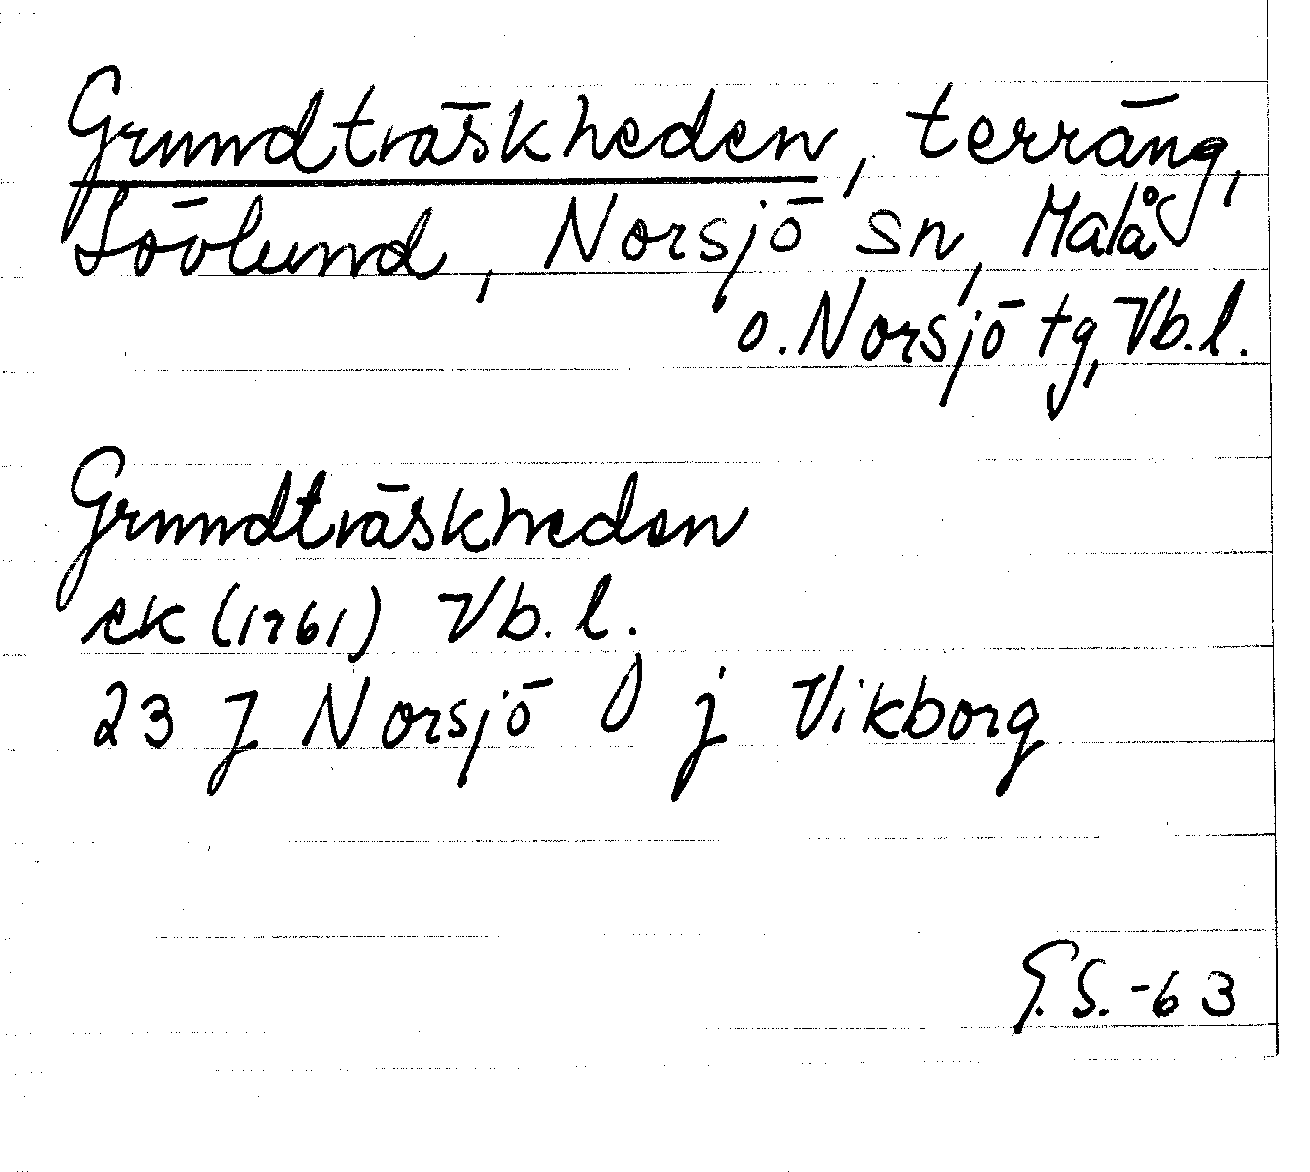 Grundträskheden, terräng,
Lövlund, Norsjö sn, Malå
o. Norsjö tg, Vb.l.
Grundträskheden
ek (1961) Vb. l.
23 J Norsjö 0 j Vikborg
G.S. -63